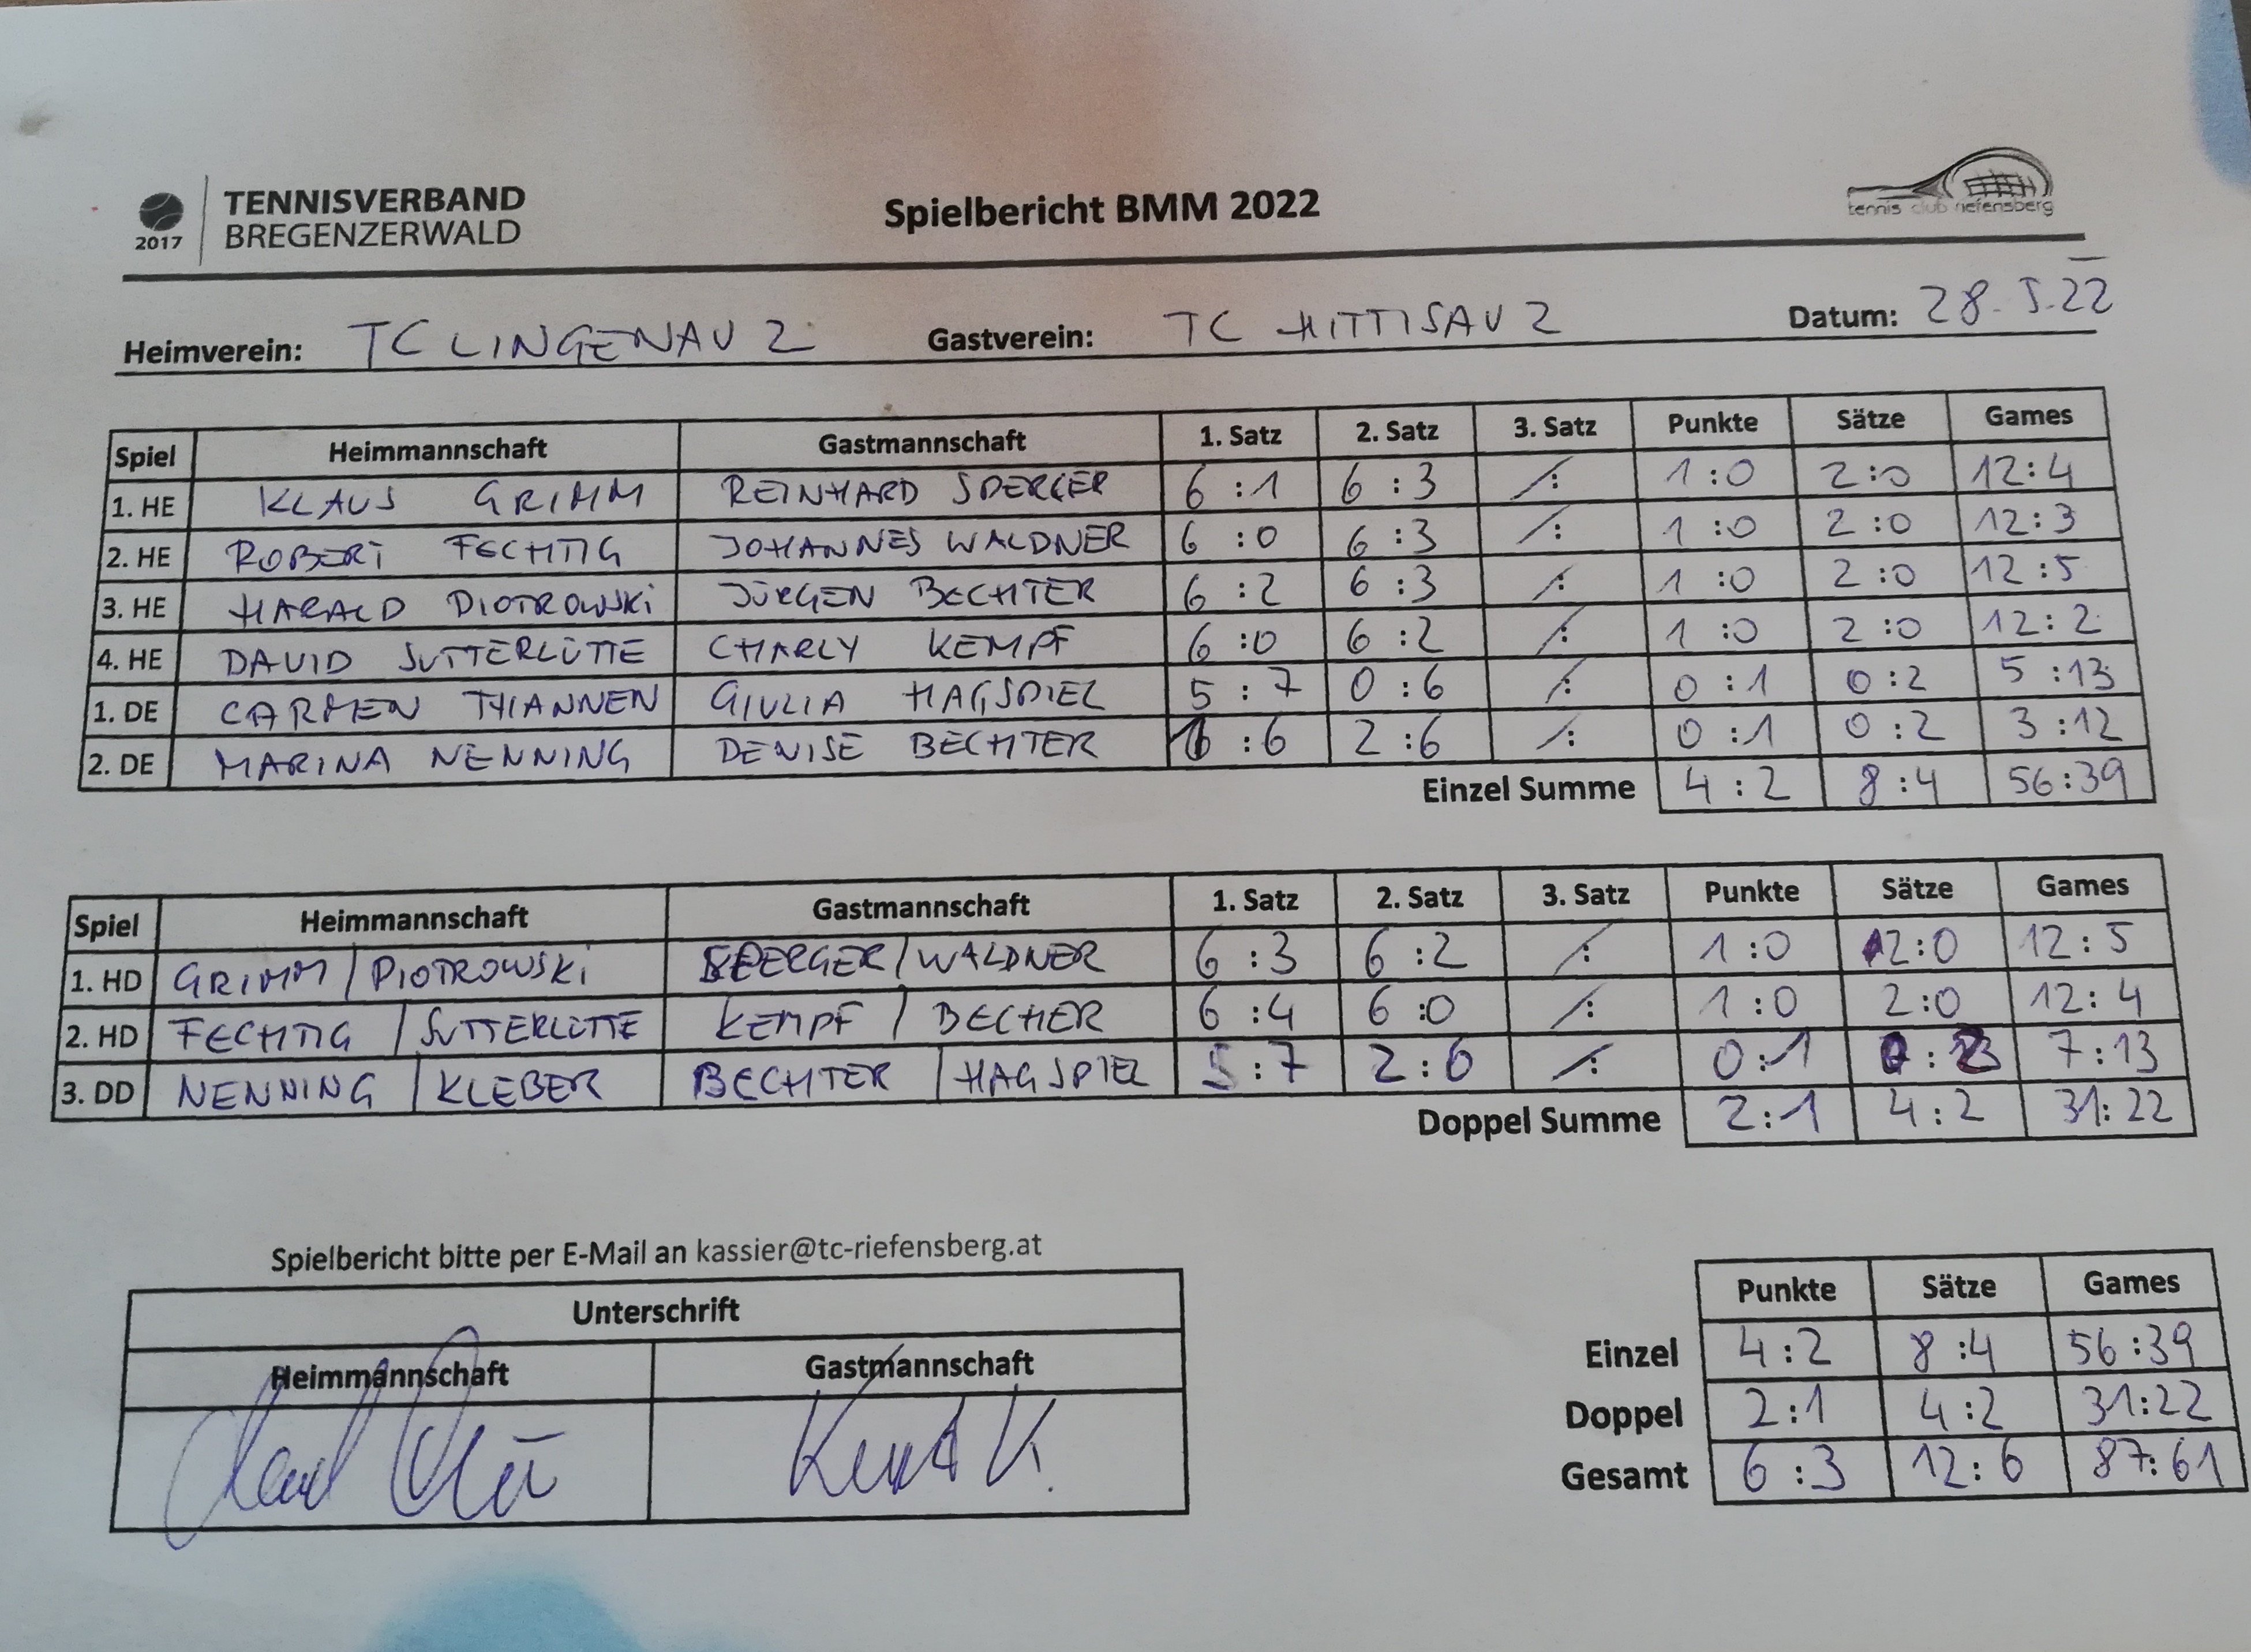 TENNISVERBAND
BREGENZERWALD
2017
Spielbericht BMM 2022
tennis club riefensberg
Heimverein: TC LINGENAU 2 Gastverein: TC HITTISAU 2 Datum: 28.5.22
Spiel Heimmannschaft Gastmannschaft 1. Satz 2. Satz 3. Satz Punkte Sätze Games
1. HE KLAUS GRIMM REINHARD SPERGER 6 :1 6 :3 /: 1 :0 2:0 12:4
2. HE ROBERT FECHTIG JOHANNES WALDNER 6 :0 6 :3 /: 1 :0 2 :0 12:3
3. HE HARALD PIOTROWSKI JÜRGEN BECHTER 6 :2 6 :3 /: 1 :0 2 :0 12 :5
4. HE DAVID SUTTERLÜTTE CHARLY KEMPF 6 :0 6 :2 /: 1 :0 2 :0 12: 2
1. DE CARMEN THANNEN GIULIA HAGSPIEL 5 : 7 0 :6 /: 0 :1 0 :2 5 :13
2. DE MARINA NENNING DENISE BECHTER 1 :6 2 :6 /: 0 :1 0 :2 3 :12
Einzel Summe 4 : 2 8 :4 56:39
Spiel Heimmannschaft Gastmannschaft 1. Satz 2. Satz 3. Satz Punkte Sätze Games
1. HD GRIMM / PIOTROWSKI SPERGER / WALDNER 6 :3 6 :2 /: 1 :0 2:0 12: 5
2. HD FECHTIG / SUTTERLÜTTE KEMPF / BECHER 6 :4 6 :0 /: 1 :0 2:0 12: 4
3. DD NENNING / KLEBER BECHTER / HAGSPIEL 5 :7 2 :6 /: 0 :1 0 : 2 7 :13
Doppel Summe 2:1 4 :2 31:22
Spielbericht bitte per E-Mail an kassier@tc-riefensberg.at
Unterschrift
Heimmannschaft Gastmannschaft
Punkte Sätze Games
Einzel 4 :2 8 :4 56 :39
Doppel 2 :1 4 :2 31:22
Gesamt 6 :3 12: 6 87:61